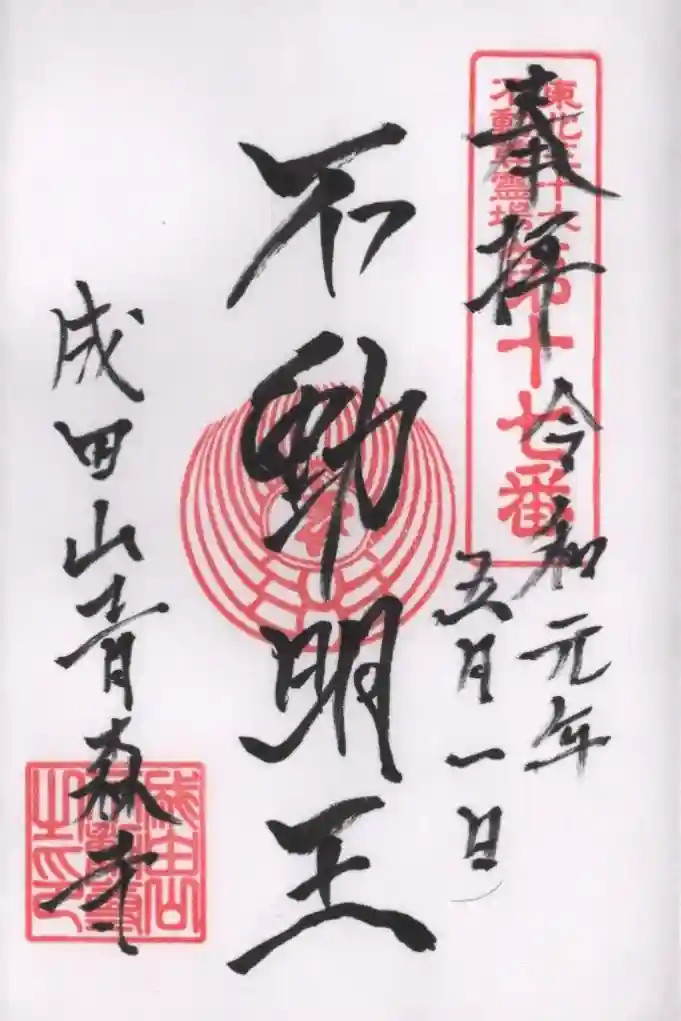 東北三十六
不動尊霊場
第十七番
奉拝
令和元年
五月一日
不動明王
成田山青森寺